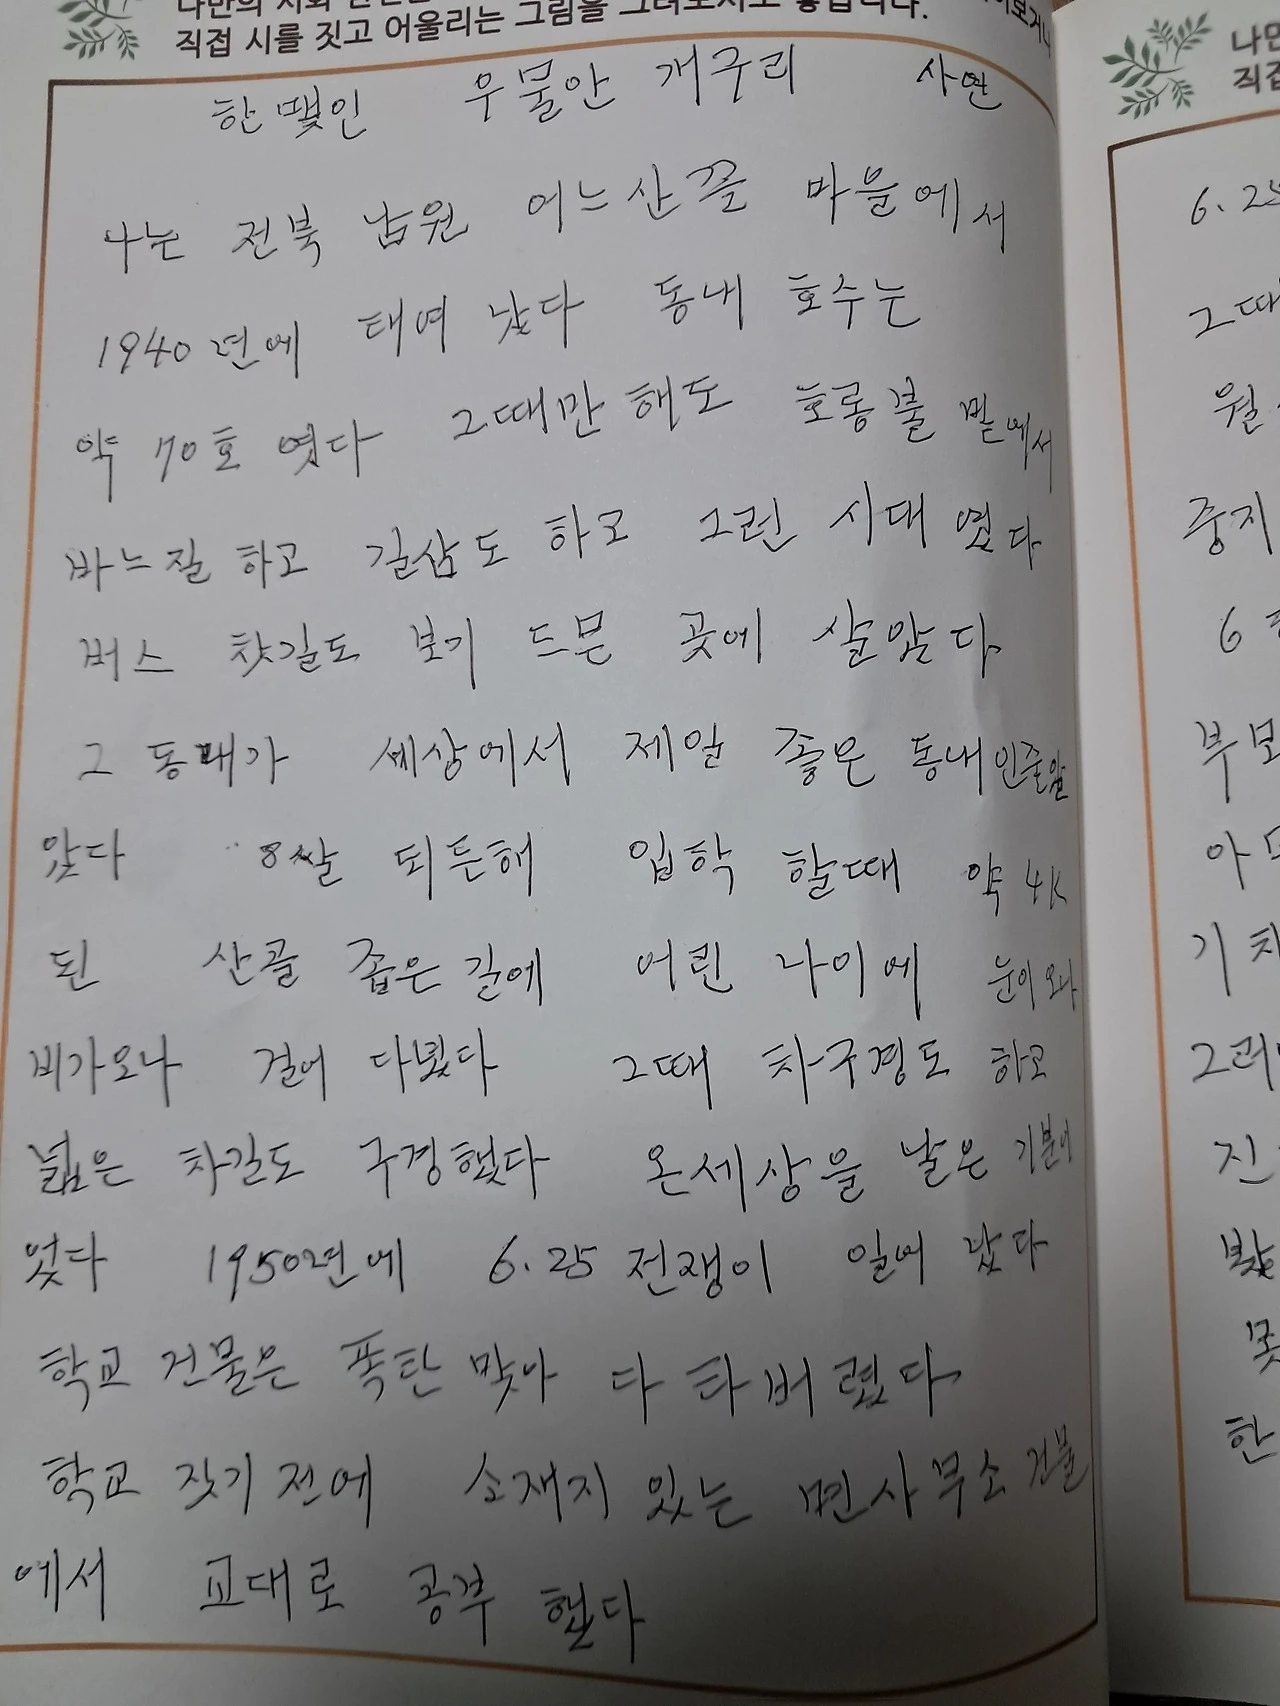 직접 시를 짓고 어울리는 그림을 그려보셔도 좋습니다.
한 맺인 우물안 개구리 사연
나는 전북 남원 어느산꼴 마을에서
1940년에 태여 났다 동내 호수는
약 70호 였다 그때만 해도 호롱불 밑에서
바느질 하고 길삼도 하고 그런 시대 였다
버스 찻길도 보기 드믄 곳에 살았다
그 동내가 세상에서 제일 좋은 동내인줄알
았다 8살 되든해 입학 할때 약 4K
된 산골 좁은 길에 어린 나이에 눈이오나
비가오나 걸어 다녔다 그때 차구경도 하고
넓은 차길도 구경했다 온세상을 날은 기분이
었다 1950년에 6.25 전쟁이 일어 났다
학교 건물은 폭탄 맞아 다 타버렸다
학교 짓기 전에 소재지 있는 면사무소 건물
에서 교대로 공부 했다
나만
직접
6.25
그때
월
중지
6
부모
아
기차
그래
진
못
한